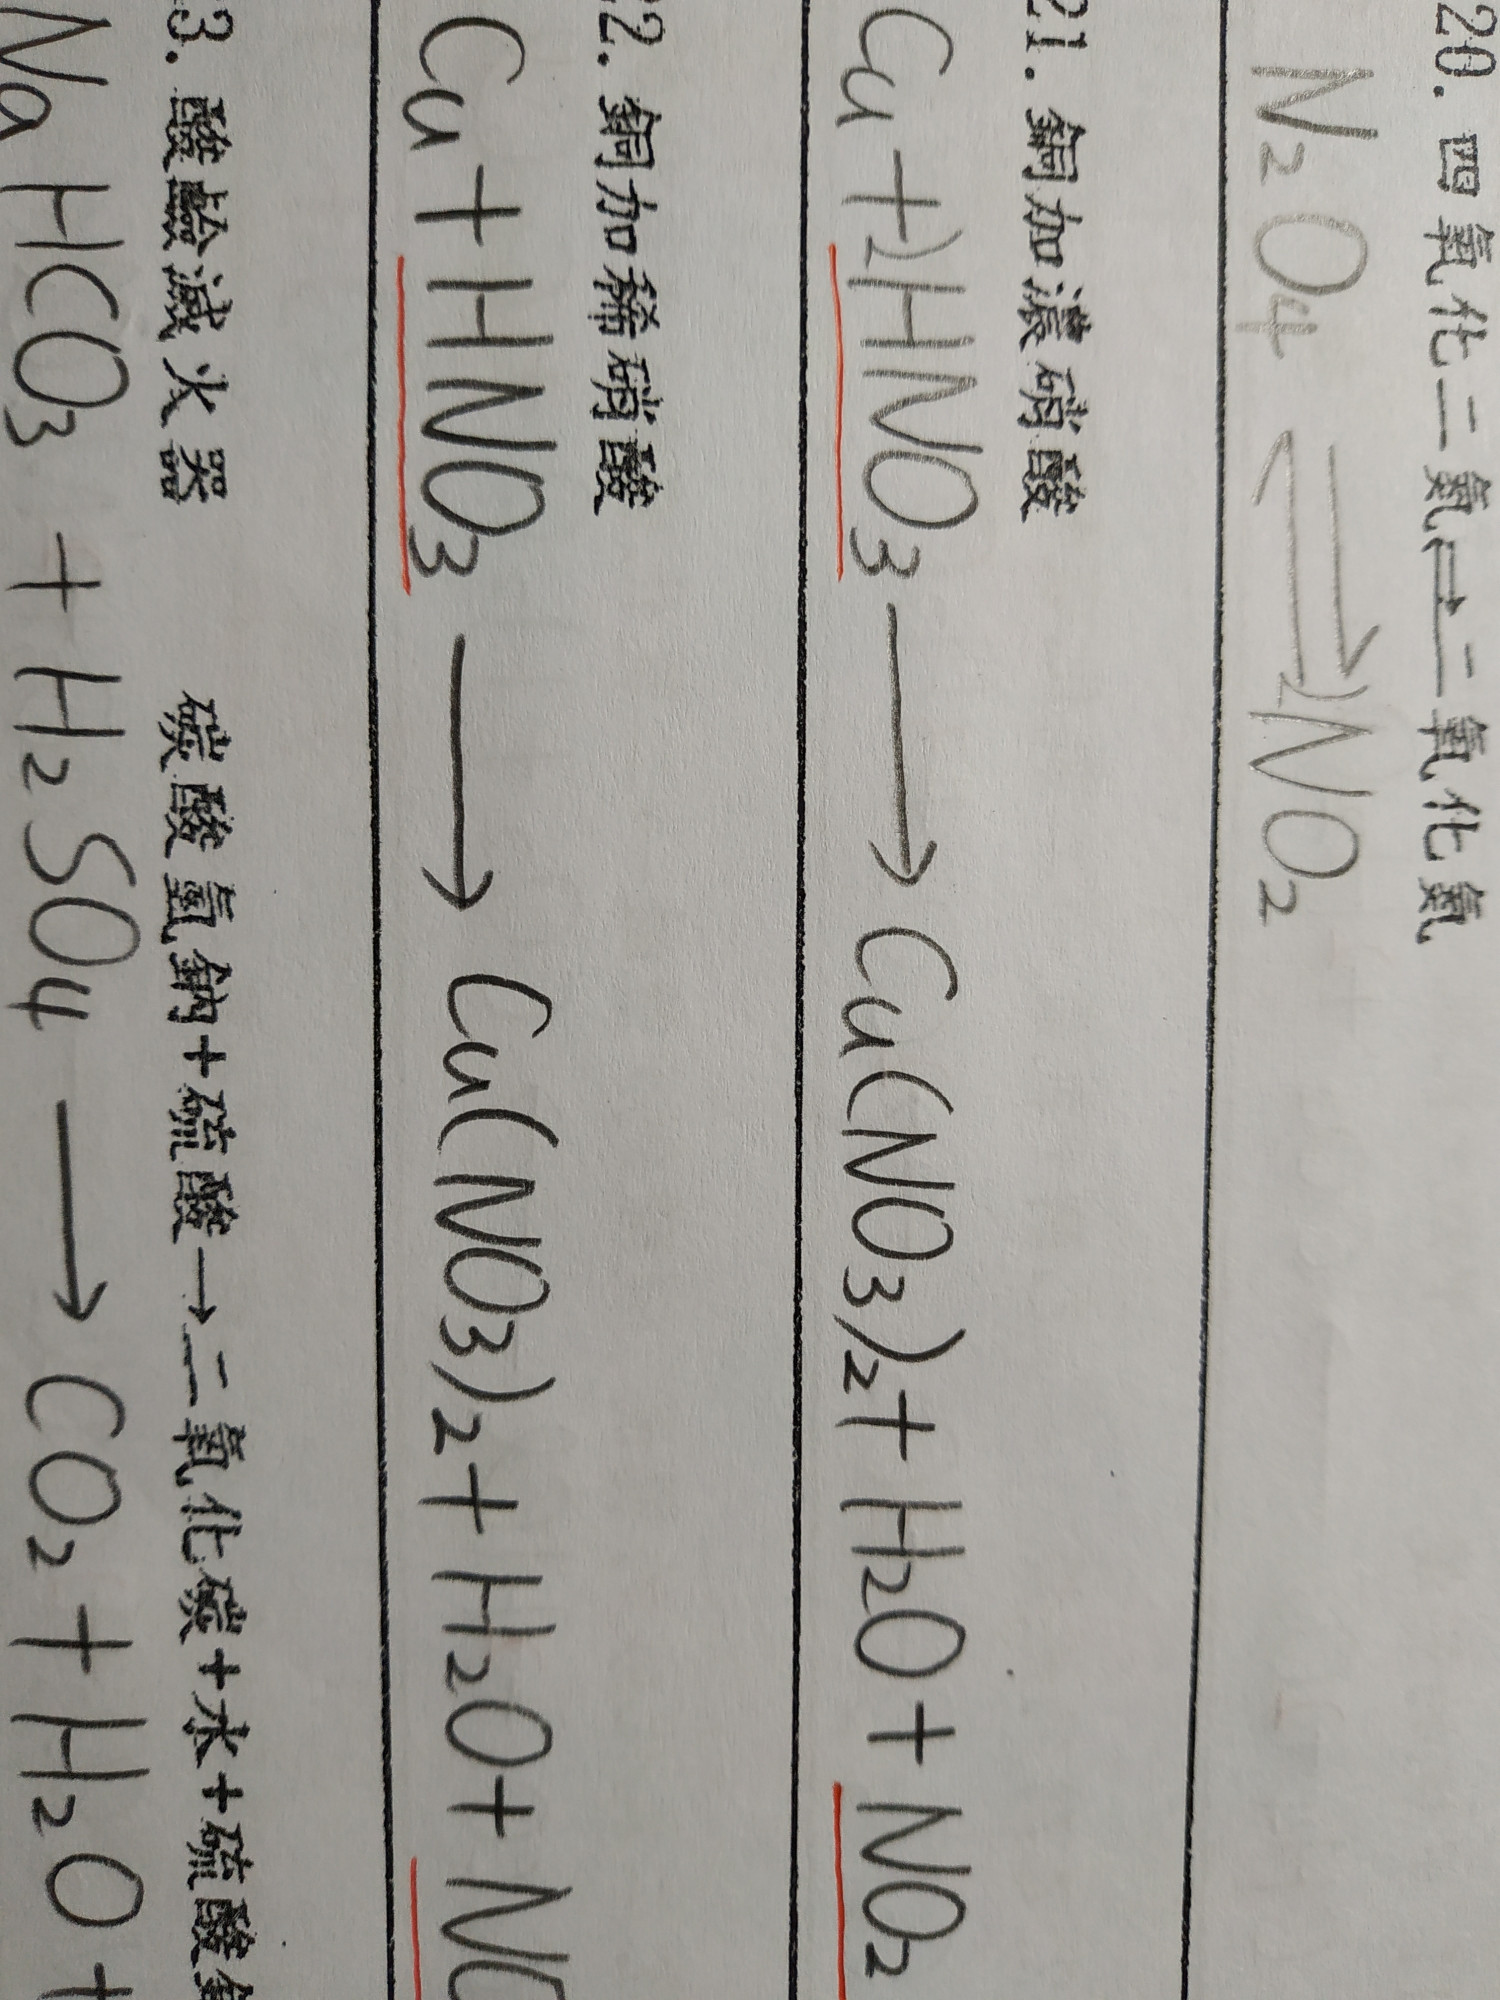 20. 四氧化二氮⇌二氧化氮
N₂O₄ ⇌ 2NO₂
21. 銅加濃硝酸
Cu + 2HNO₃ → Cu(NO₃)₂ + H₂O + NO₂
22. 銅加稀硝酸
Cu + HNO₃ → Cu(NO₃)₂ + H₂O + NO
3. 酸鹼滅火器 碳酸氫鈉+硫酸→二氧化碳+水+硫酸
NaHCO₃ + H₂SO₄ → CO₂ + H₂O +